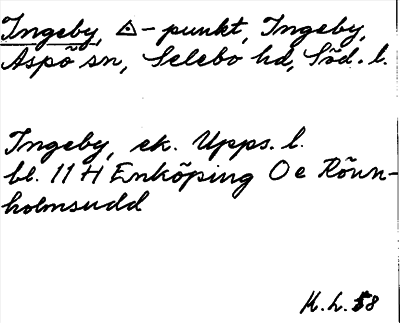 Ingeby, △-punkt, Ingeby,
Aspö sn, Selebo hd, Söd. l.
Ingeby, ek. Upps. l.
bl. 11 H Enköping O e Rönn-
holmsudd
M.L. 58